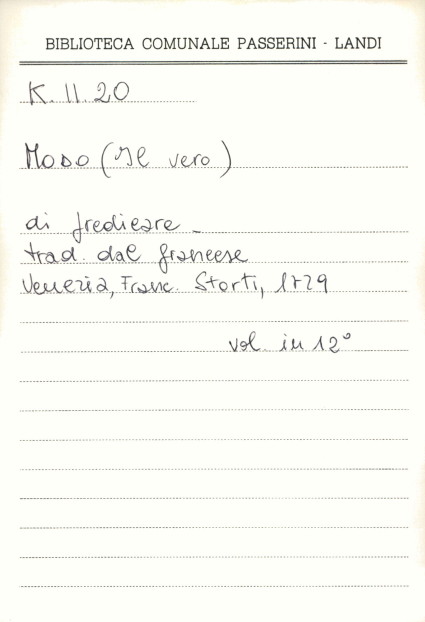 BIBLIOTECA COMUNALE PASSERINI - LANDI
K. II. 20
MODO (Il vero)
di predicare -
trad. dal francese
Venezia, Franc. Storti, 1729
vol. in 12°